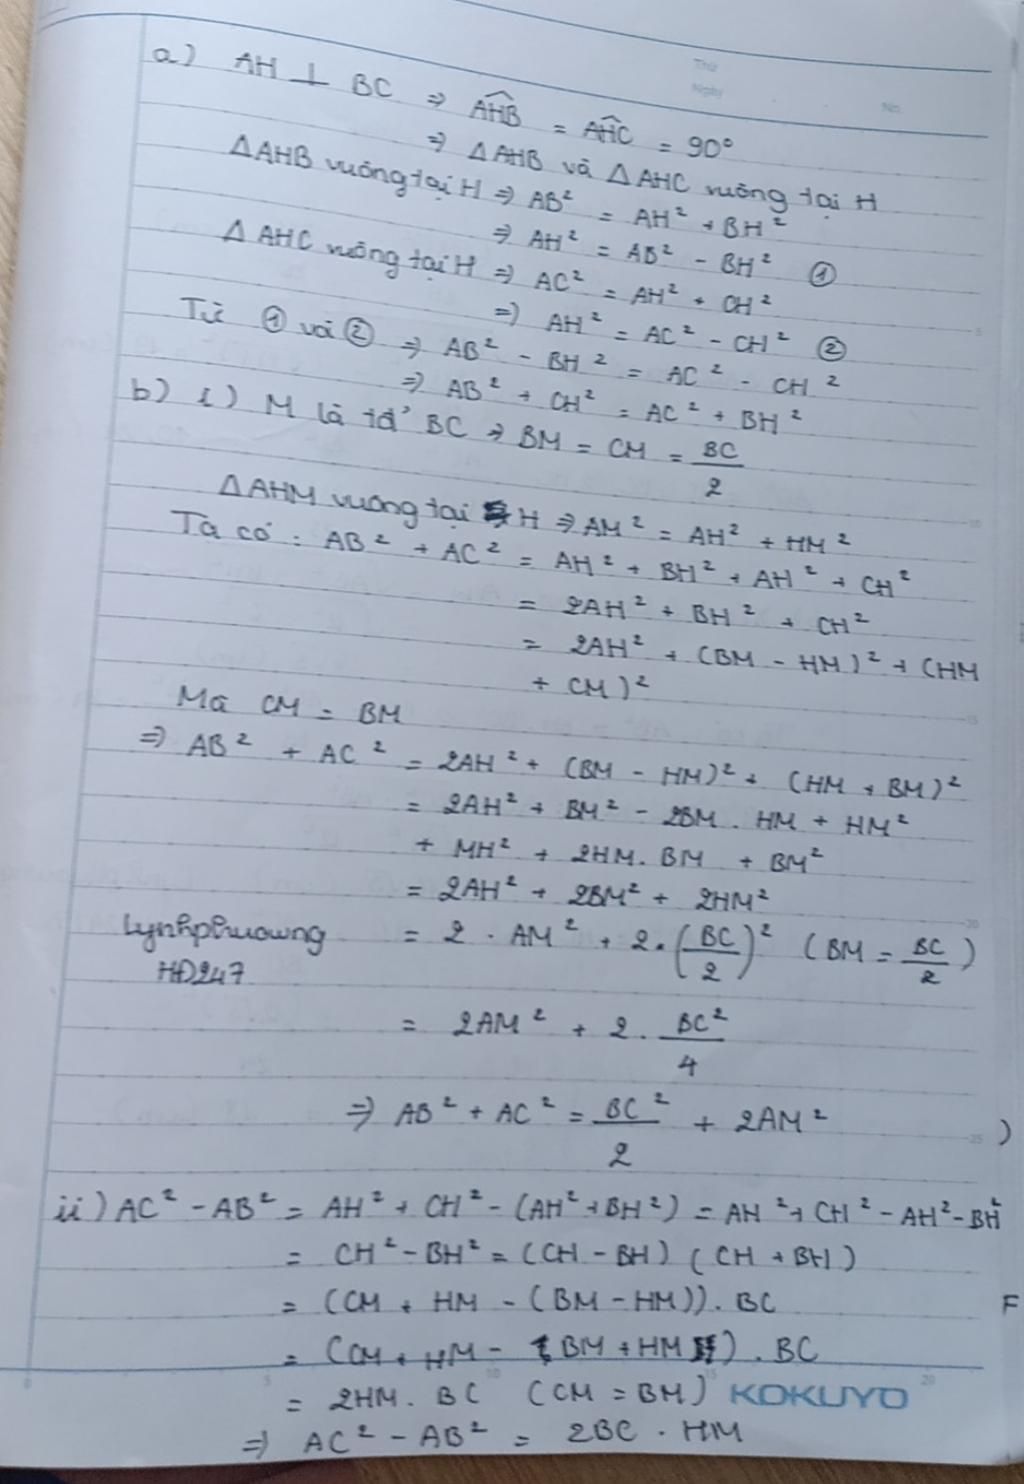 Thứ
Ngày
No.
a) AH ⊥ BC ⇒ \widehat{AHB} = \widehat{AHC} = 90°
⇒ ΔAHB và ΔAHC vuông tại H
ΔAHB vuông tại H ⇒ AB² = AH² + BH²
⇒ AH² = AB² - BH² ①
ΔAHC vuông tại H ⇒ AC² = AH² + CH²
⇒ AH² = AC² - CH² ②
Từ ① và ② ⇒ AB² - BH² = AC² - CH²
⇒ AB² + CH² = AC² + BH²
b) i) M là tđ' BC ⇒ BM = CM = BC/2
ΔAHM vuông tại H ⇒ AM² = AH² + HM²
Ta có : AB² + AC² = AH² + BH² + AH² + CH²
= 2AH² + BH² + CH²
= 2AH² + (BM - HM)² + (HM
+ CM)²
Mà CM = BM
⇒ AB² + AC² = 2AH² + (BM - HM)² + (HM + BM)²
= 2AH² + BM² - 2BM . HM + HM²
+ MH² + 2HM. BM + BM²
= 2AH² + 2BM² + 2HM²
Lynhphuowng
HĐ247
= 2 . AM² + 2. (BC/2)² (BM = BC/2)
= 2AM² + 2. BC²/4
⇒ AB² + AC² = BC²/2 + 2AM²
)
ii) AC² - AB² = AH² + CH² - (AH² + BH²) = AH² + CH² - AH² - BH²
= CH² - BH² = (CH - BH) (CH + BH)
= (CM + HM - (BM - HM)). BC
F
= (CM + HM - BM + HM) . BC
= 2HM. BC (CM = BM)
KOKUYO
⇒ AC² - AB² = 2BC . HM